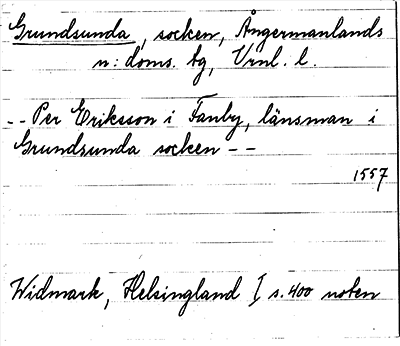 Grundsunda, socken, Ångermanlands
n: doms. bg, Vrnl. l.
-- Per Eriksson i Fanby, länsman i
Grundsunda socken --
1557
Widmark, Helsingland I s. 400 noten